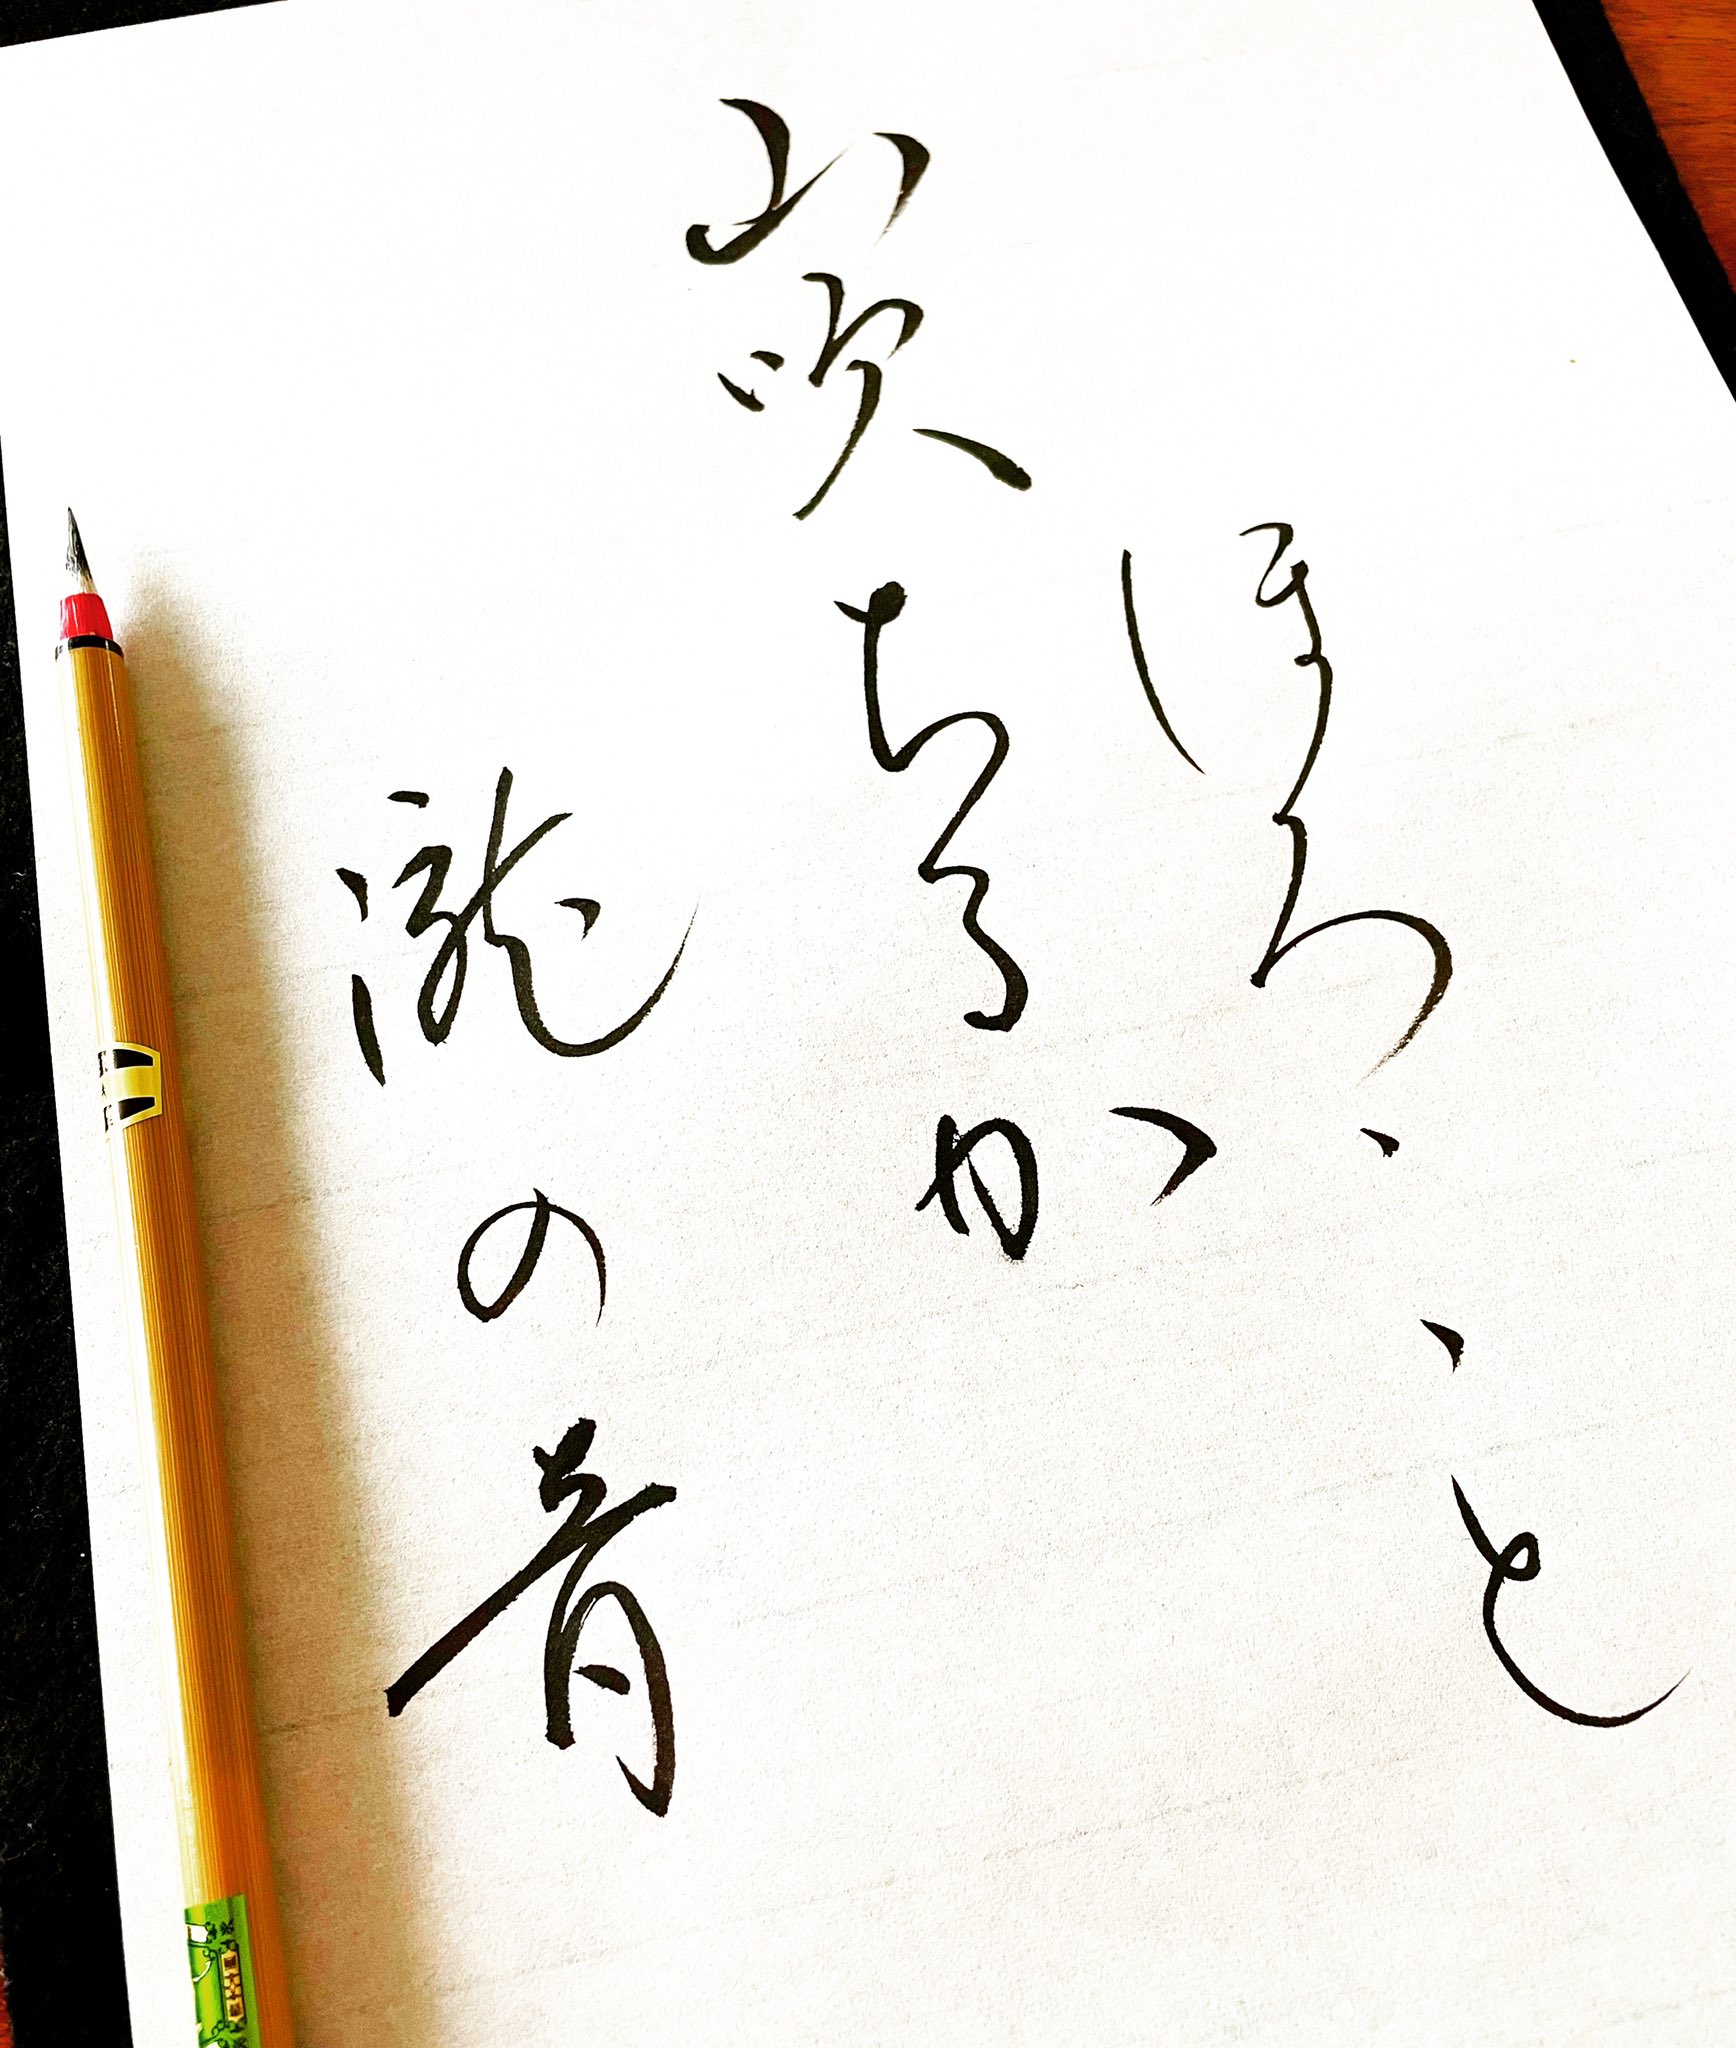 ほろゝゝと
山吹ちるか
瀧の音